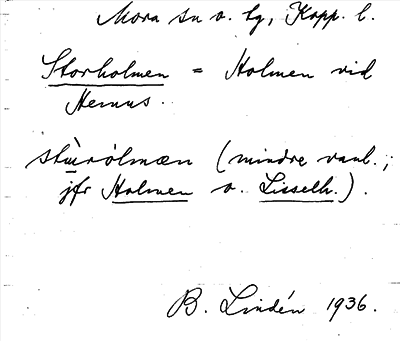 Mora sn o. tg, Kopp. l.
Storholmen = Holmen vid
Hemus.
stùròlmæn (mindre vanl.;
jfr Holmen o. Lisselh.).
B. Lindén 1936.